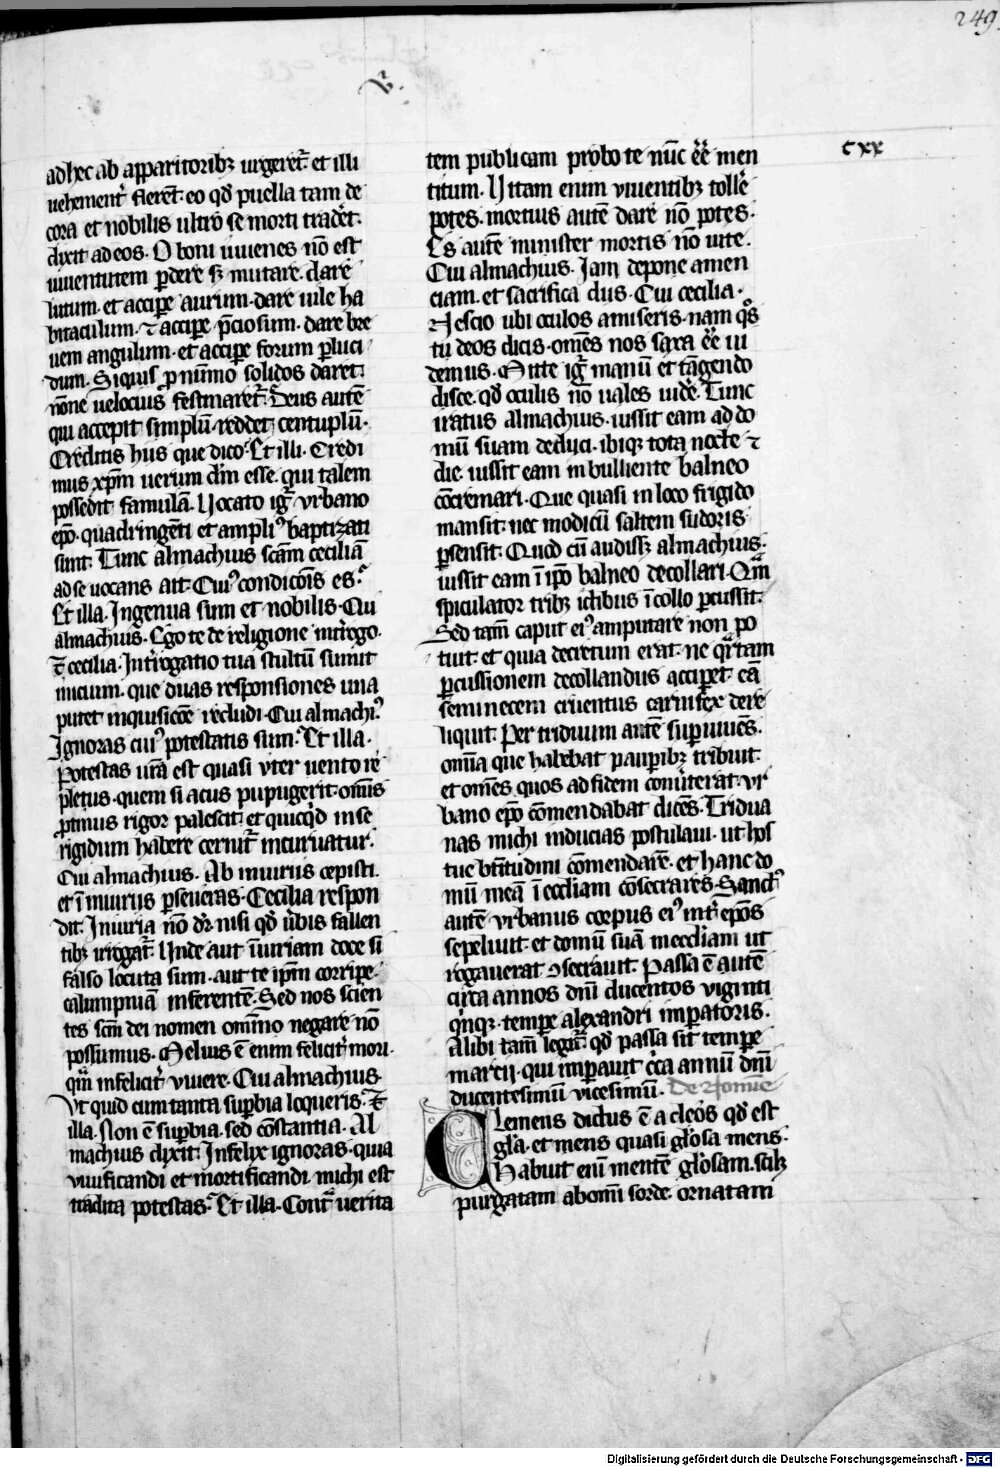 249.
v.
cxx
ad hec ab apparitoribꝫ urgeret᷑. et illi
uehement̾ flerent. eo qd̾ puella tam de
cora et nobilis ultro se morti trad̾et.
dixit ad eos. O boni iuuenes nō est
iuuentutem ꝑdere sꝫ mutare. dare
lutum. et accipe aurum. dare uile ha
bitaculum. ⁊ accipe p̄ciosum. dare bre
uem angulum. et accipe forum ꝑluci
dum. Siquis ꝓ nūmo solidos daret.
nōne uelocius festinaret᷑. Deus autē
qui accepit simplū. reddet centuplū.
Creditis hiis que dico. Et illi. Credi
mus xp̄m uerum dm̄ esse. qui talem
possedit famulā. Uocato ig̾ vrbano
ep̄o. quadringēti et ampliꝰ baptizati
sunt. Tunc almachius sc̄am ceciliā
ad se uocans ait. Cuiꝰ condicōis es.
Et illa. Ingenua sum et nobilis. Cui
almachius. Ego te de religione int̾rogo.
Et cecilia. Int̾rogatio tua stultū sumit
inicium. que duas responsiones una
putet inquisicōe recludi. Cui almachiꝰ.
Ignoras cuiꝰ potestatis sum. Et illa.
Potestas ur̄a est quasi vter uento re
pletus. quem si acus pupugerit. omīs
ꝓtinus rigor palescit. et quicq̾d in se
rigidum habere cernit᷑ incuruatur.
Cui almachius. Ab iniuriis cepisti.
et ī iniuriis ꝑseueras. Cecilia respon
dit. Iniuria nō dr̄ nisi qd̾ u̾bis fallen
tibꝫ irrogat᷑. Unde aut īiuriam doce si
falso locuta sum. aut te ip̄m corripe.
calumpniā inferentē. Sed nos scien
tes sc̄m dei nomen om̄ino negare nō
possumus. Melius ē enim felicit̾ mori.
qm̄ infelicit̾ viuere. Cui almachius.
Vt quid cum tanta suꝑbia loqueris. Et
illa. Non ē suꝑbia. sed cōstantia. Al
machius dixit. Infelix ignoras. quia
viuificandi et mortificandi michi est
tradita potestas. Et illa. Cont᷑ uerita
tem publicam probo te nūc eē men
titum. Uitam enim viuentibꝫ toll̾e
potes. mortuis autē dare nō potes.
Es autē minister mortis nō uite.
Cui almachius. Jam depone amen
ciam. et sacrifica diis. Cui cecilia.
Nescio ubi oculos amiseris. nam qͦs
tu deos dicis. omēs nos saxa eē ui
demus. Mitte ig̾ manū et tāgendo
disce. qd̾ oculis nō uales uid̾e. Tunc
iratus almachius. iussit eam ad do
mū suam deduci. ibiqꝫ tota nocte ⁊
die. iussit eam in bulliente balneo
cōcremari. Que quasi in loco frigido
mansit. nec modicū saltem sudoris
ꝑsensit. Quod cū audissꝫ almachius.
iussit eam ī ip̄o balneo decollari. Qm̄
spiculator tribꝫ ictibus ī collo ꝑcussit.
Sed tam̄ caput eiꝰ amputare non po
tiut. et quia decretum erat. ne q̾rtam
ꝑcussionem decollandus accipet. eā
seminecem cruentus carnifex dere
liquit. Per triduum autē suꝑuiuēs.
om̄ia que habebat pauꝑibꝫ tribuit.
et omēs quos ad fidem conu̾terat. vr
bano ep̄o cōmendabat dicēs. Tridua
nas michi inducias postulaui. ut hos
tue btitudini cōmendarē. et hanc do
mū meā ī eccliam cōsecrares. Sanctꝰ
autē vrbanus corpus eiꝰ int̾ ep̄os
sepeliuit. et domū suā in eccliam ut
rogauerat ꝯsecrauit. Passa ē autē
circa annos dn̄i ducentos viginti
q̾nqꝫ. tempe alexandri imꝑatoris.
Alibi tam̄ legit᷑. qd̾ passa sit tempe
marcij. qui imꝑauit c̾ca annū dn̄i
ducentesimū vicesimū. De nomīe
Clemens dictus ē a cleos qd̾ est
gl̾a. et mens quasi gl̾osa mens.
Habuit enī mentē gl̾osam. scilꝫ
purgatam ab om̄i sorde. ornatam
Digitalisierung gefördert durch die Deutsche Forschungsgemeinschaft - DFG